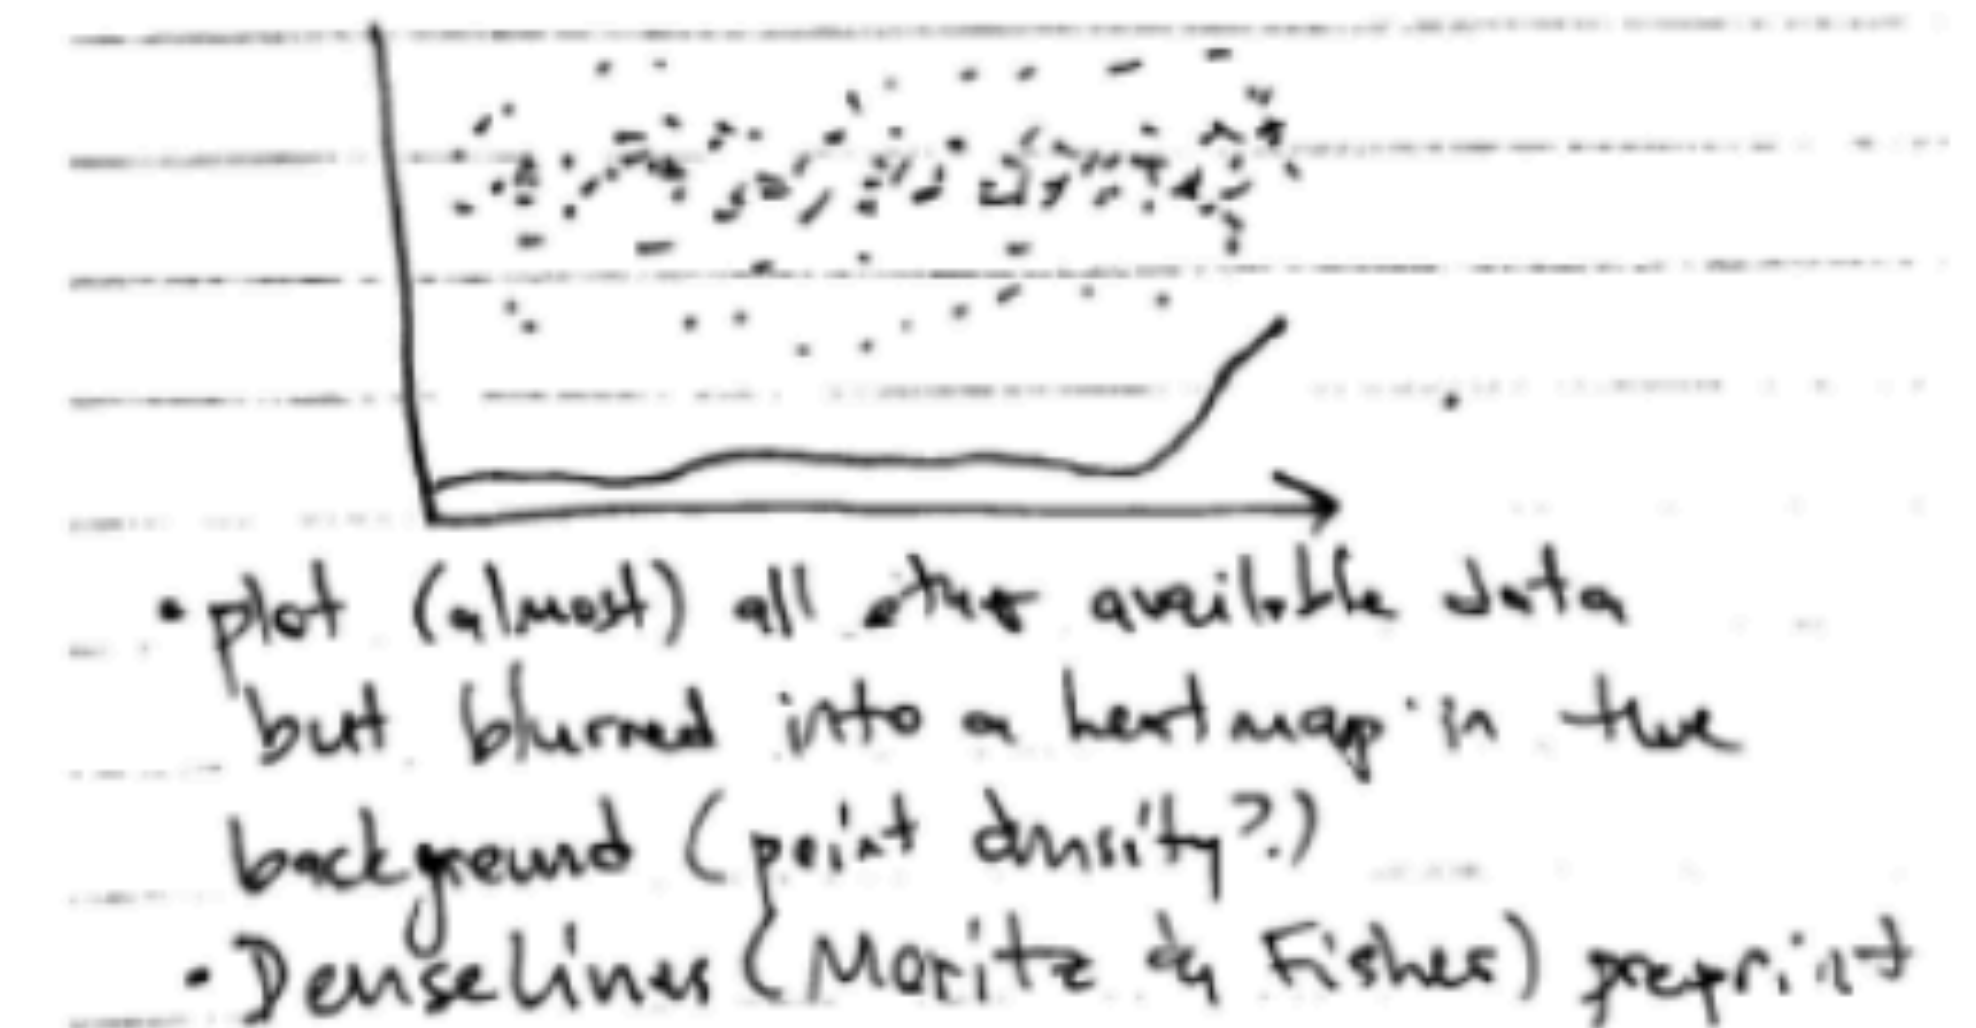 • plot (almost) all other available data
but blurred into a heatmap in the
background (point density?)
• Denselines (Moritz & Fisher) preprint